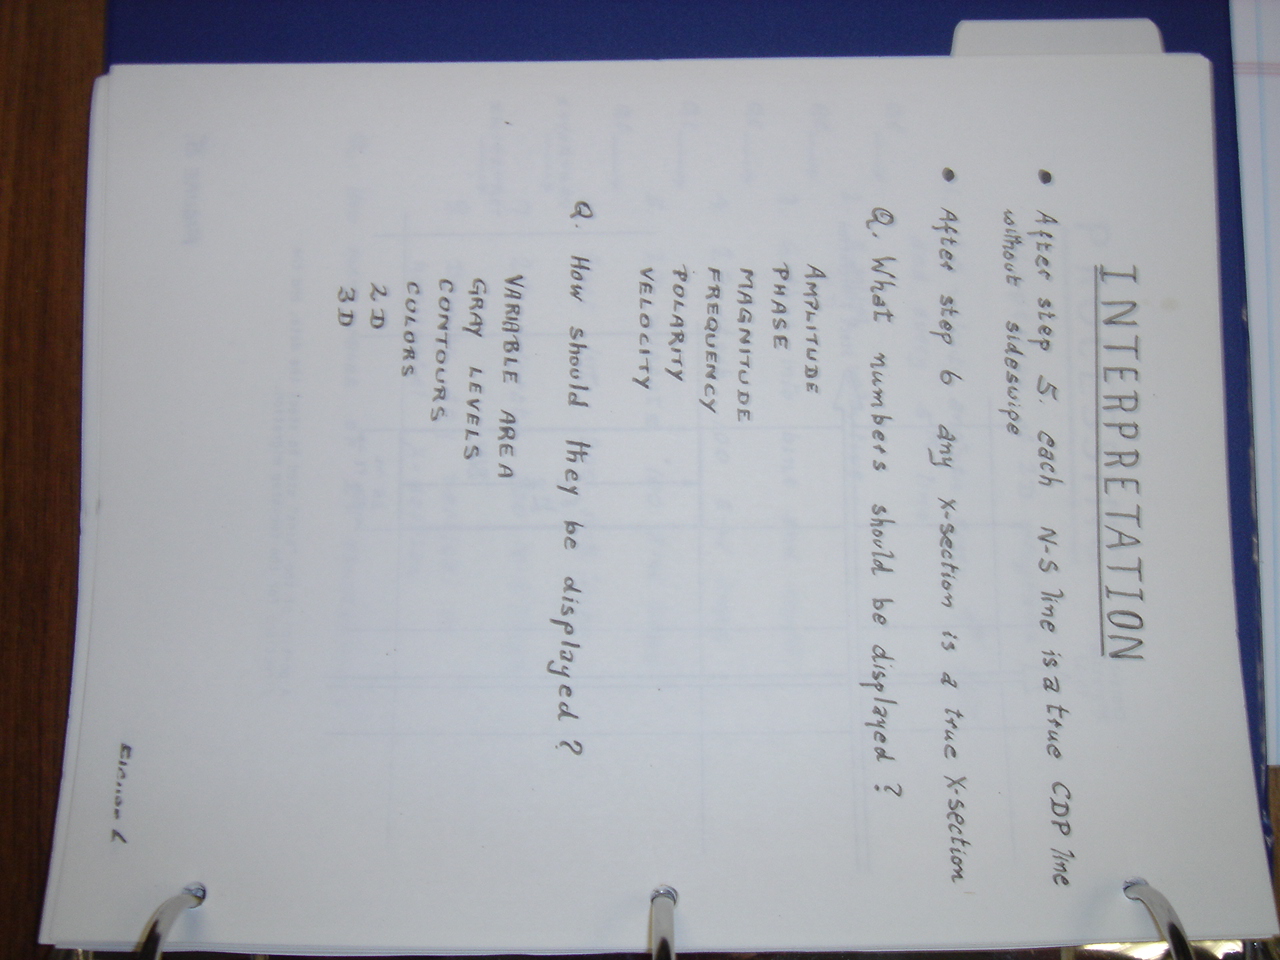 INTERPRETATION
• After step 5. each N-S line is a true CDP line
without sideswipe
• After step 6 any X-section is a true X-section
Q. What numbers should be displayed?
AMPLITUDE
PHASE
MAGNITUDE
FREQUENCY
POLARITY
VELOCITY
Q. How should they be displayed?
VARIABLE AREA
GRAY LEVELS
CONTOURS
COLORS
2D
3D